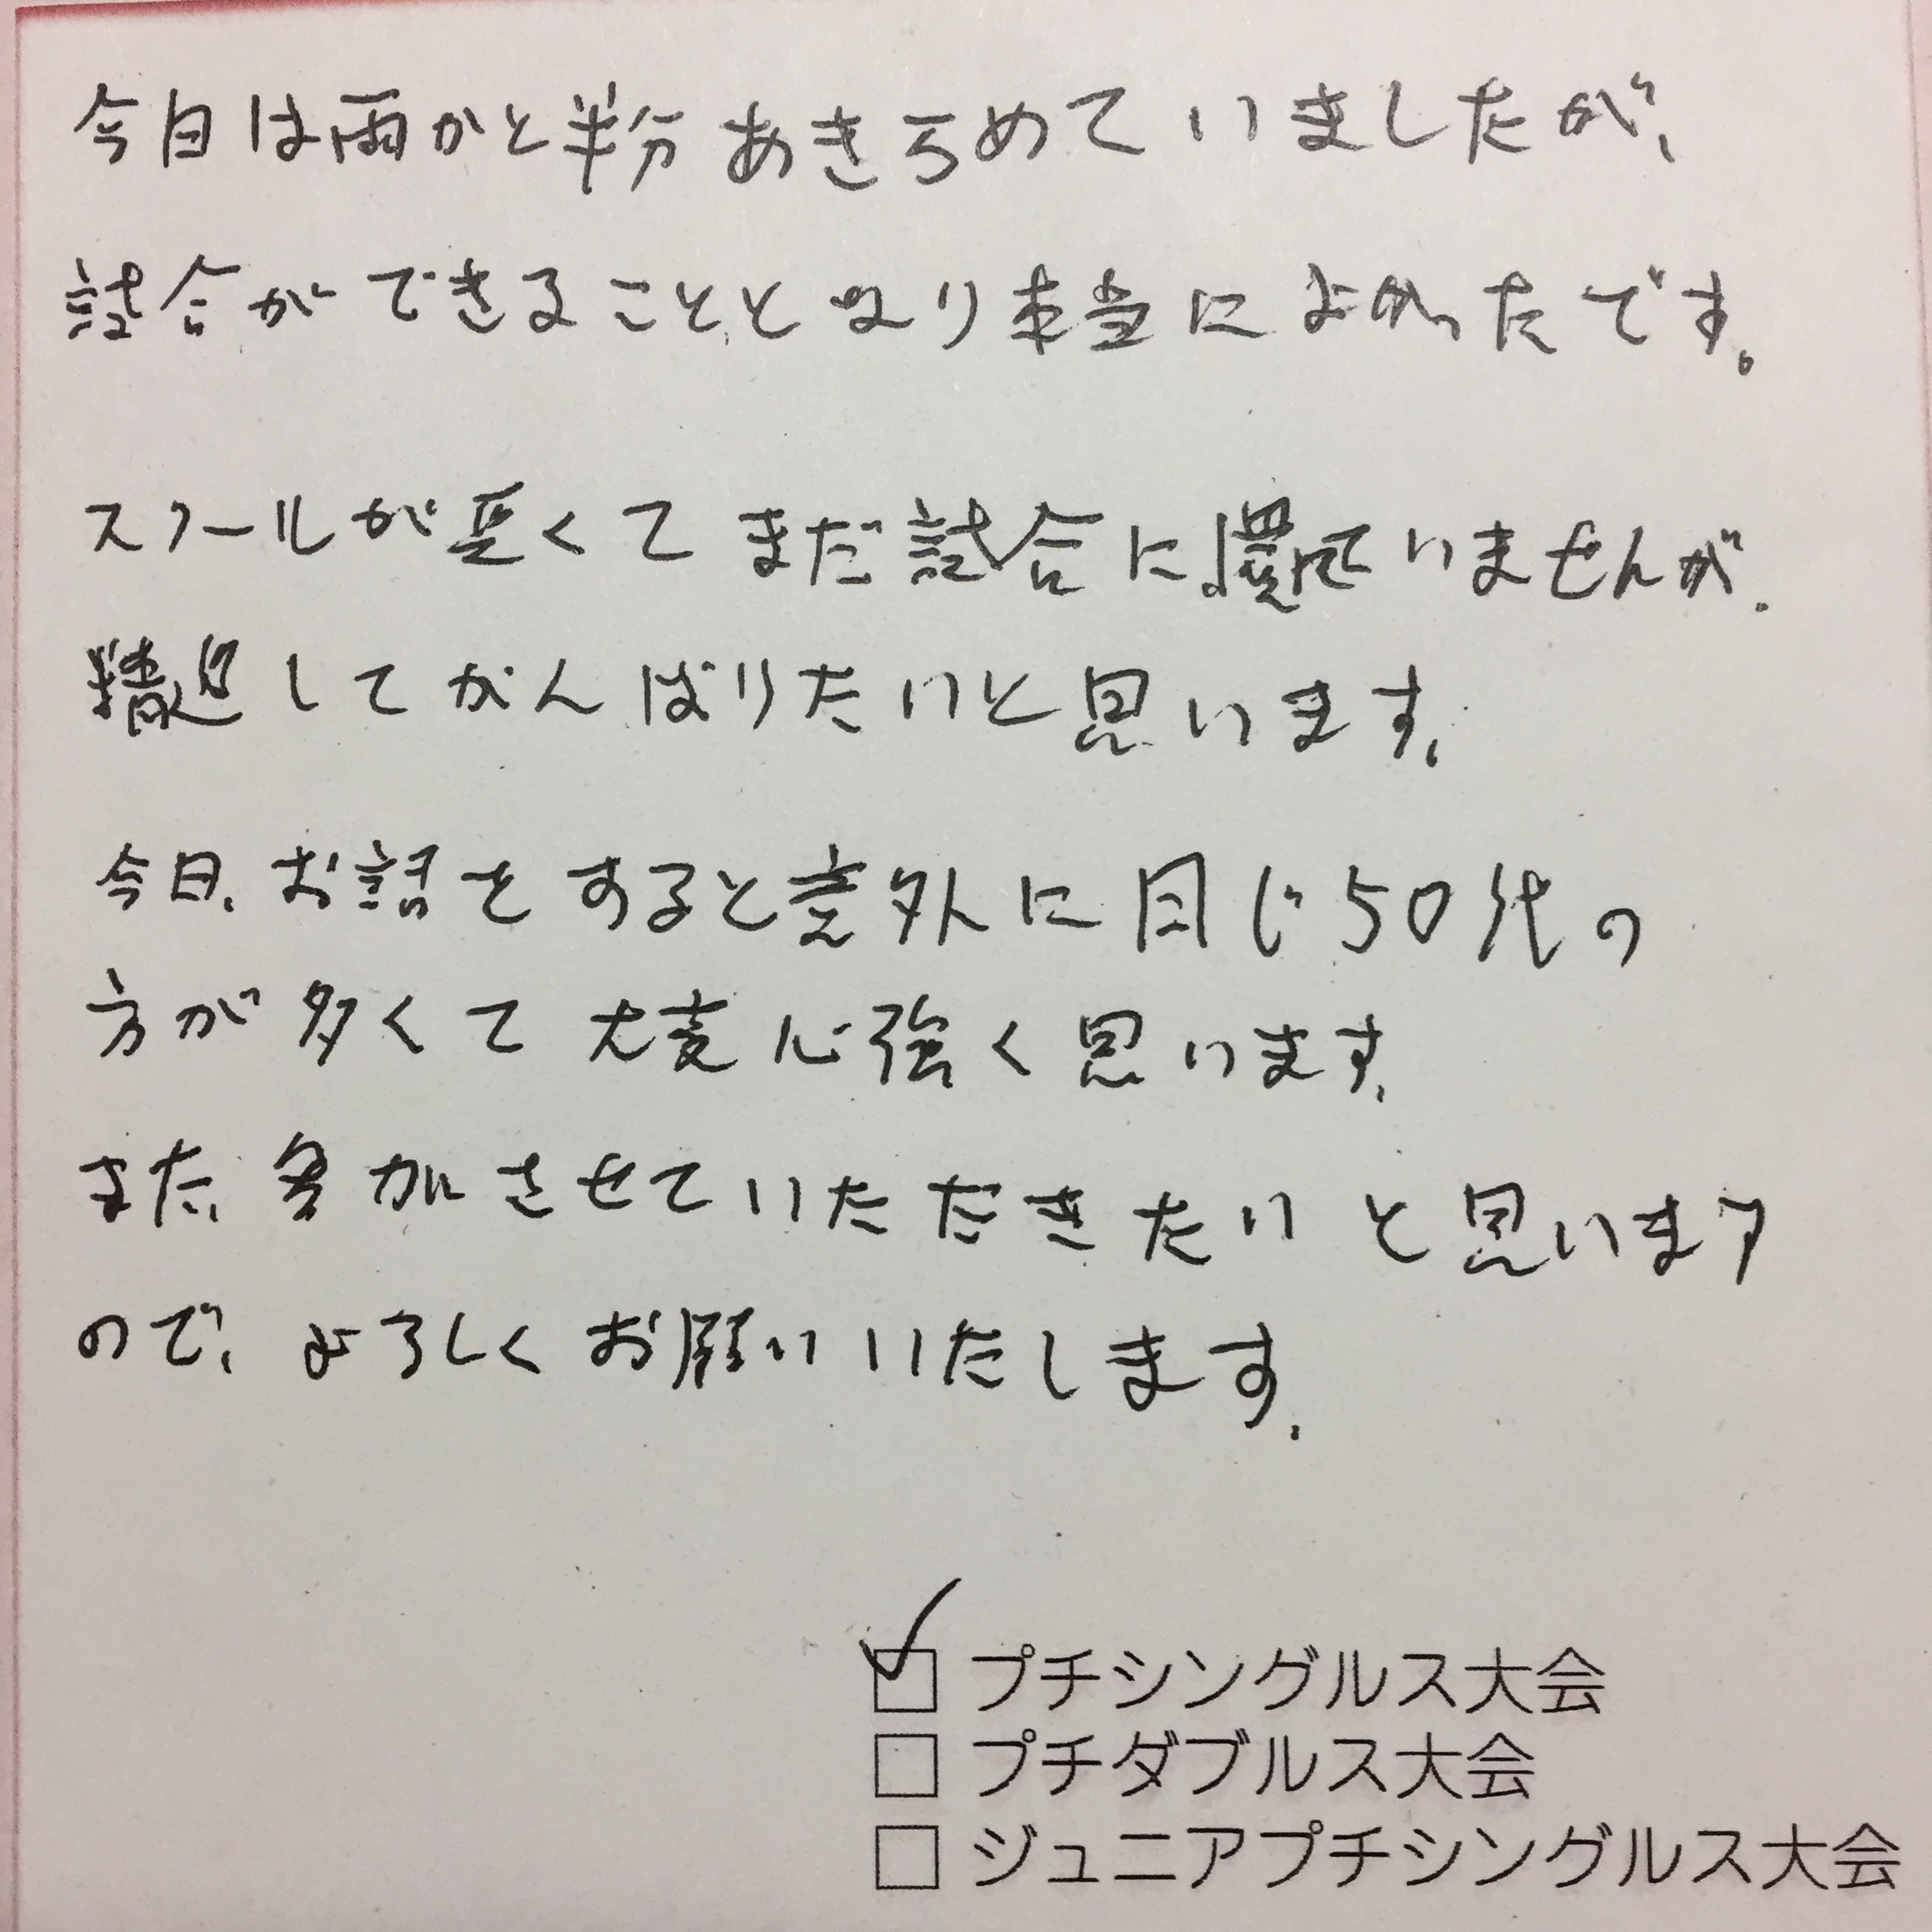 今日は雨かと半分あきらめていましたが、
試合ができることとなり本当によかったです。
スクールが長くてまだ試合に慣れていませんが、
精進してがんばりたいと思います。
今日、お話をすると意外に同じ50代の
方が多くて大変心強く思います。
また、参加させていただきたいと思います
ので、よろしくお願いいたします。
プチシングルス大会
プチダブルス大会
ジュニアプチシングルス大会